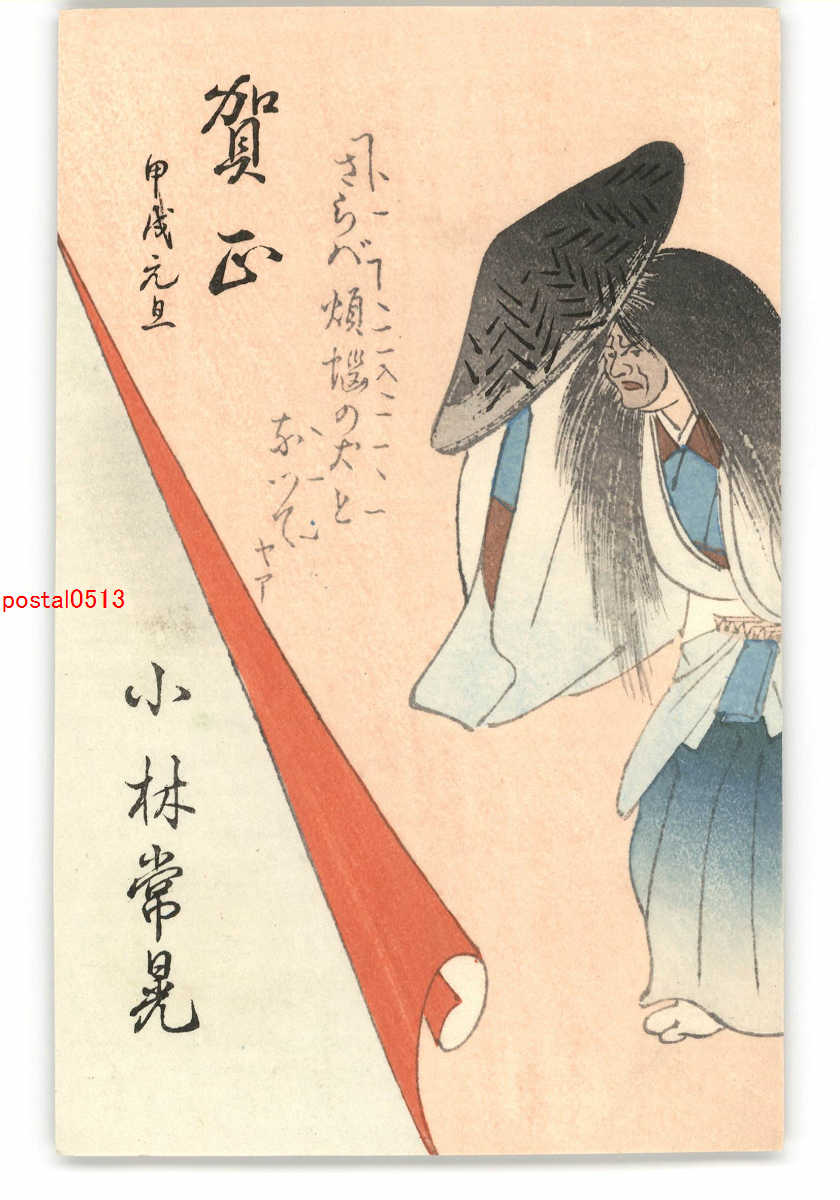 さらば煩悩の犬と
なつて
ヤア
賀正
甲戌元旦
小林常晃
postal0513